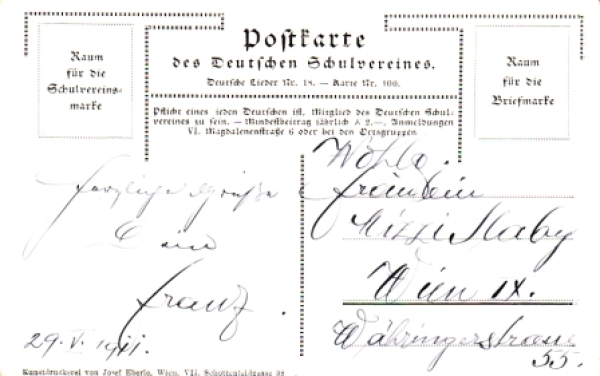 Postkarte
des Deutschen Schulvereines.
Deutsche Lieder Nr. 18. — Karte Nr. 100.
Raum
für die
Schulvereins-
marke
Raum
für die
Briefmarke
Pflicht eines jeden Deutschen ist, Mitglied des Deutschen Schul-
vereines zu sein. — Mindestbeitrag jährlich K 2.—. Anmeldungen
VI. Magdalenenstraße 6 oder bei den Ortsgruppen
herzliche Grüße
Dein
Franz.
29. V. 1911.
Wohlg.
Fräulein
Mizzi Slaby
Wien IX.
Währingerstrasse
55.
Kunstdruckerei von Josef Eberle, Wien, VII. Schottenfeldgasse 38